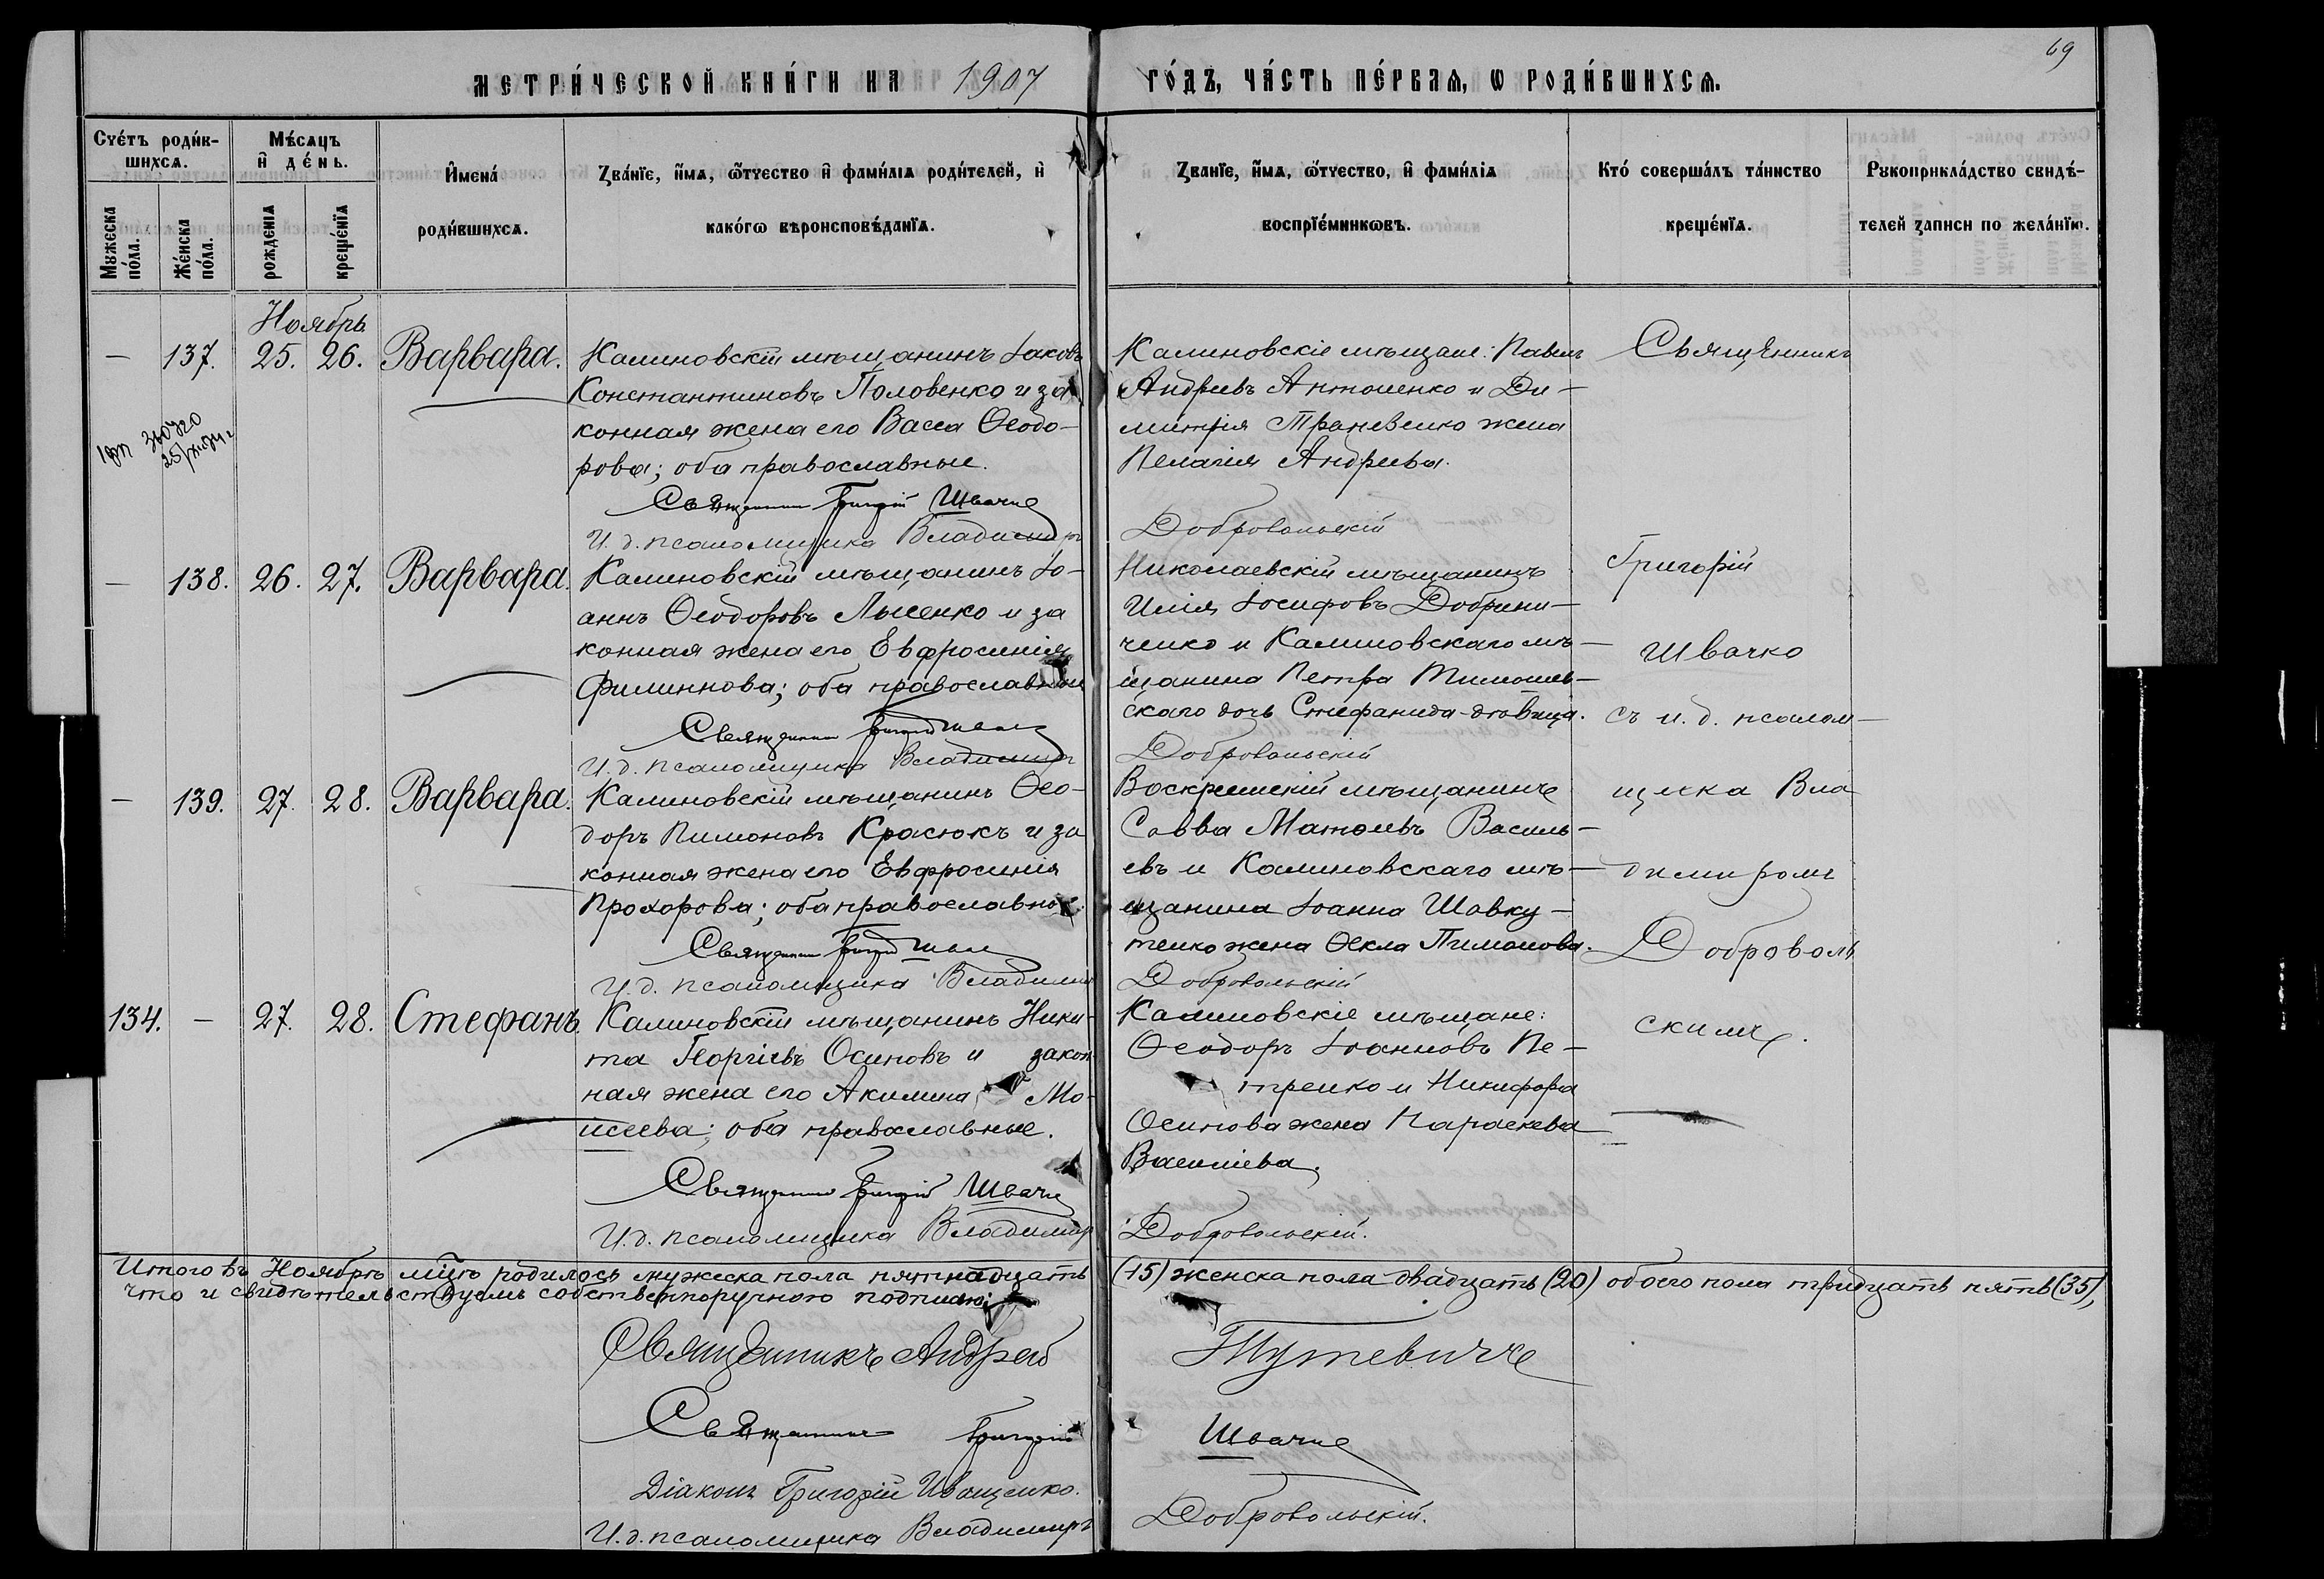 69
МЕТРИ́ЧЕСКОЙ КНИ́ГИ НА 1907 ГО́ДЪ, ЧА́СТЬ ПЕ́РВАѦ, Ѡ РОДИ́ВШИХСѦ.
Счéтъ роди́в-
шихсѧ.
Мужеска
по́ла.
Же́нска
по́ла.
Мѣ́сѧцъ
и҆ де́нь.
рожденїѧ
креще́нїѧ
И҆мена́
роди́вшихсѧ.
Зва́нїе, и҆́мѧ, ѻ҆́тчество и҆ фами́лїѧ роди́телей, и҆
како́гѡ вѣроисповѣ́данїѧ.
Званїе, и҆́мѧ, ѻ҆́тчество, и҆ фами́лїѧ
воспрїе́мникѡвъ.
Кто́ соверша́лъ та́инство
креще́нїѧ.
Рꙋкоприкла́дство свидѣ́-
телей записи по жела́нїю.
Ноябрь
— 137. 25. 26. Варвара.
Калиновскій мѣщанинъ Іаковъ
Константиновъ Половенко и за
конная жена его Васса Ѳеодо-
рова; оба православные.
Священник Григорій Швачко
И. д. псаломщика Владимір
Калиновскіе мѣщане: Павелъ
Андреевъ Антоненко и Ди-
митрія жена
Пелагія Андреева.
Добровольскій
Священникъ
— 138. 26. 27. Варвара.
Калиновскій мѣщанинъ Іо-
аннъ Ѳеодоровъ Лысенко и за
конная жена его Евфросинія
Филиппова; оба православные
Священник Григорій Швачко
И. д. псаломщика Владимір
Николаевскій мѣщанинъ
Илія Іосифовъ Добрини-
ченко и Калиновскаго мѣ-
щанина Петра Тимошев-
скаго дочь Стефанида-дѣвица.
Добровольскій
Григорій
Швачко
съ и. д. псалом-
— 139. 27. 28. Варвара.
Калиновскій мѣщанинъ Ѳео-
доръ Пимоновъ Красюкъ и за
конная жена его Евфросинія
Прохорова; оба православные.
Священник Григорій Швачко
И. д. псаломщика Владимір
Воскресенскій мѣщанинъ
Савва Матѳіевъ Василь-
евъ и Калиновскаго мѣ-
щанина Іоанна Шавку-
тенко жена Ѳекла Пимонова.
Добровольскій
щика Вла
диміромъ
Доброволь
скимъ.
134. — 27. 28. Стефанъ.
Калиновскій мѣщанинъ Ники-
та Георгіевъ Осиповъ и закон-
ная жена его Акилина Мо-
исеева; оба православные.
Священник Григорій Швачко
И. д. псаломщика Владимір
Калиновскіе мѣщане:
Ѳеодоръ Іоанновъ Пе-
тренко и Никифора
Осипова жена Параскева
Василіева.
Добровольскій.
Итого въ Ноябрѣ мцѣ родилось мужеска пола пятнадцать (15) женска пола двадцать (20) обоего пола тридцать пять (35),
что и свидѣтельствуемъ собственноручною подписью:
Священникъ Андрей Тутевичъ
Священник Григорій Швачко
Діаконъ Григорій Иващенко.
И. д. псаломщика Владиміръ Добровольскій.